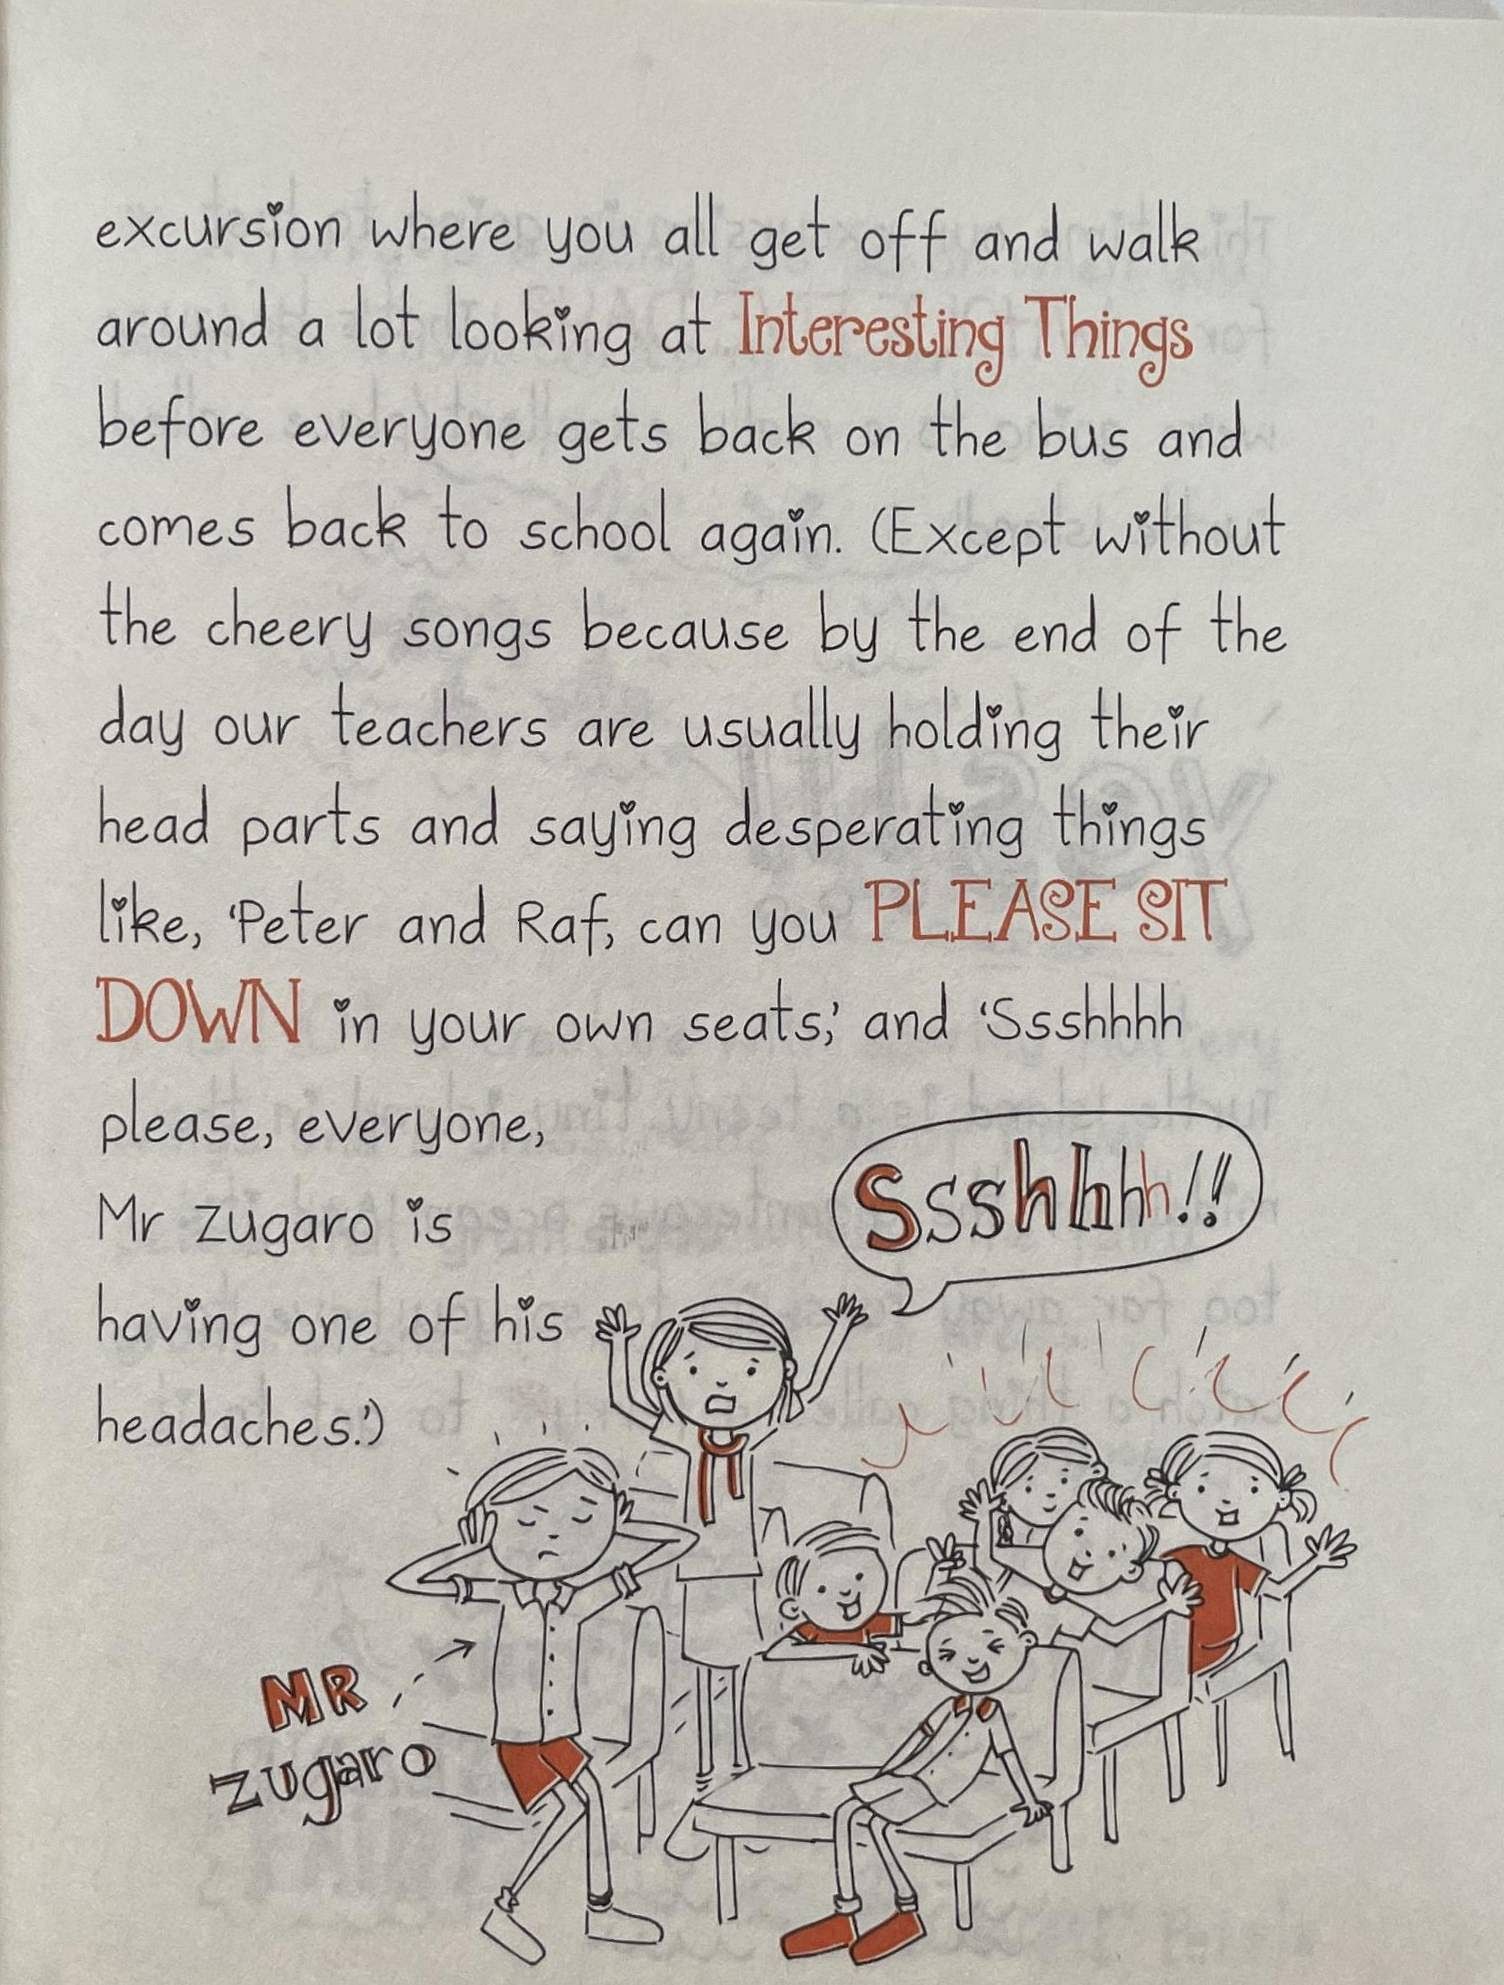 excursion where you all get off and walk
around a lot looking at Interesting Things
before everyone gets back on the bus and
comes back to school again. (Except without
the cheery songs because by the end of the
day our teachers are usually holding their
head parts and saying desperating things
like, ‘Peter and Raf, can you PLEASE SIT
DOWN in your own seats,’ and ‘Ssshhhh
please, everyone,
Mr Zugaro is
having one of his
headaches.’)
Ssshhhh!!
MR
zugaro